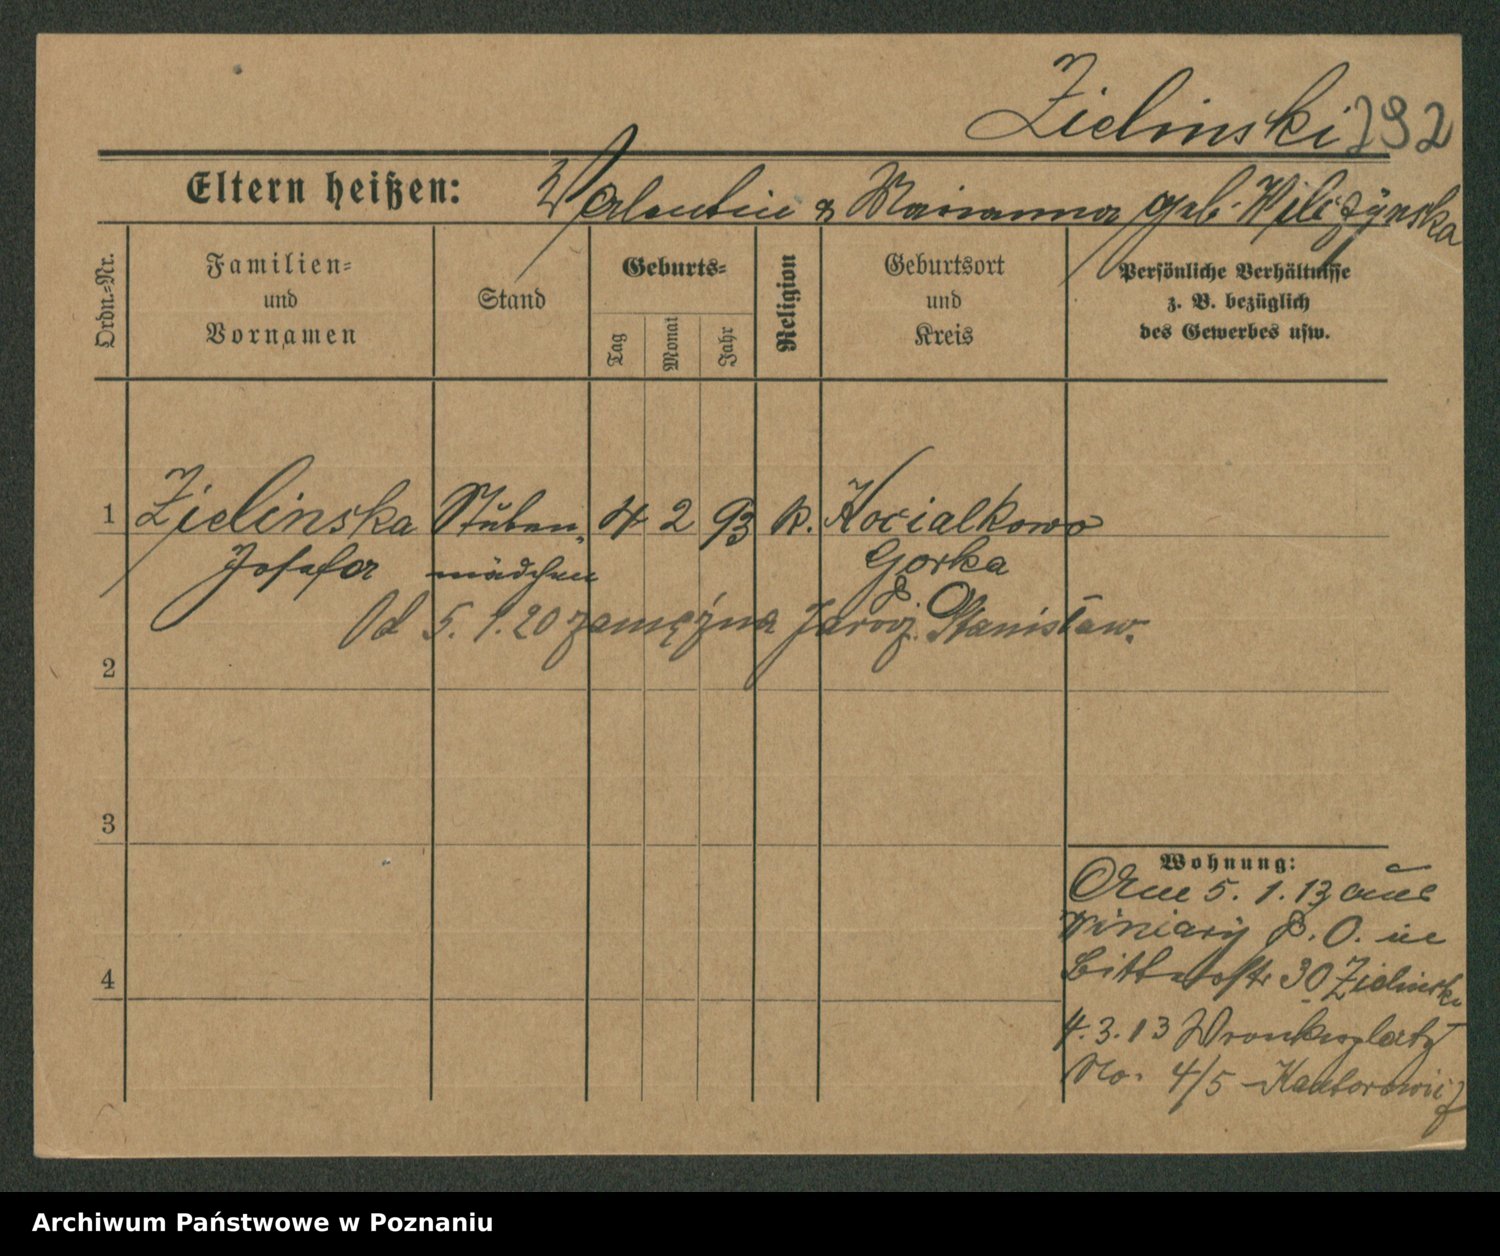 Zielinski 792
Eltern heißen: Valentin & Marianna geb. Wilczÿnska
Ordn.-Nr.
Familien-
und
Vornamen
Stand
Geburts-
Tag
Monat
Jahr
Religion
Geburtsort
und
Kreis
Persönliche Verhältnisse
z. B. bezüglich
des Gewerbes usw.
1 Zielinska Stuben- 4 2 93 k. Kocialkowo
Josefa mädchen Gorka
Od 5. 1. 20 zamężna Stanisław.
2
3
4
Wohnung:
Am 5. 1. 13 aus
Winiarÿ P. O. in
30 Zielinski
4. 3. 13 Wronkerplatz
No. 4/5 Kantorowicz
Archiwum Państwowe w Poznaniu